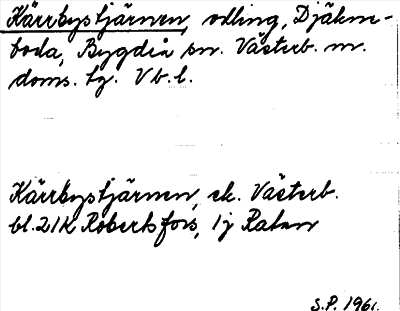 Kärrbystjärnen, odling, Djäkne-
boda, Bygdeå sn. Västerb. n.
doms. tg. Vb. l.
Kärrbystjärnen, ek. Västerb.
bl. 21K Robertsfors, 1j Ratan
S.P. 1961.